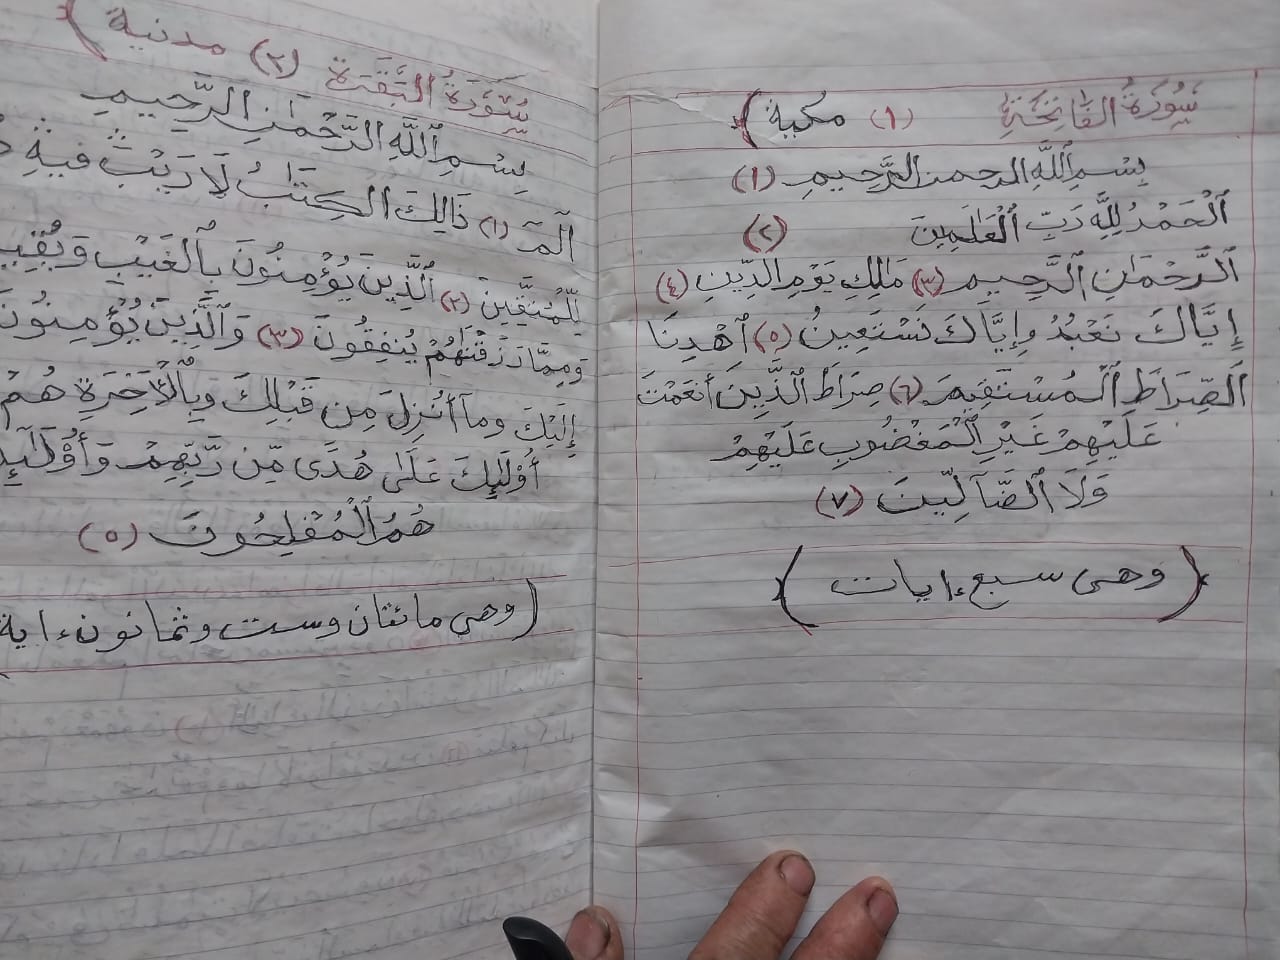 سُورَةُ الفَاتِحَةِ (١) مكية
بِسْمِ ٱللَّهِ الرحمن الرَّحِيمِ (١)
ٱلْحَمْدُ لِلَّهِ رَبِّ ٱلْعَٰلَمِينَ (٢)
ٱلرَّحْمَٰنِ ٱلرَّحِيمِ (٣) مَٰلِكِ يَوْمِ الدِّينِ (٤)
إِيَّاكَ نَعْبُدُ وإِيَّاكَ نَسْتَعِينُ (٥) ٱهْدِنَا
ٱلصِّرَاطَ ٱلْمُسْتَقِيمَ (٦) صِرَاطَ ٱلَّذِينَ أَنْعَمْتَ
عَلَيْهِمْ غَيْرِ ٱلْمَغْضُوبِ عَلَيْهِمْ
وَلَا ٱلضَّآلِّينَ (٧)
(وهى سبع ءايات)
سُورَةُ البَقَرَة (٢) مدنية
بِسْمِ ٱللَّهِ الرَّحْمَٰنِ الرَّحِيمِ
الٓمٓ (١) ذَٰلِكَ الْكِتَٰبُ لَا رَيْبَ فِيهِ
لِّلْمُتَّقِينَ (٢) ٱلَّذِينَ يُؤْمِنُونَ بِٱلْغَيْبِ وَيُقِي
وَمِمَّا رَزَقْنَٰهُمْ يُنفِقُونَ (٣) وَٱلَّذِينَ يُؤْمِنُونَ
إِلَيْكَ وماَ أُنْزِلَ مِن قَبْلِكَ وَبِٱلْأَخِرَةِ هُمْ
أُوْلَٰئِكَ عَلَىٰ هُدًى مِّن رَّبِّهِمْ وَأُوْلَٰٓئِ
هُمُ ٱلْمُفْلِحُونَ (٥)
(وهى مائتان وست وثمانون ءاية